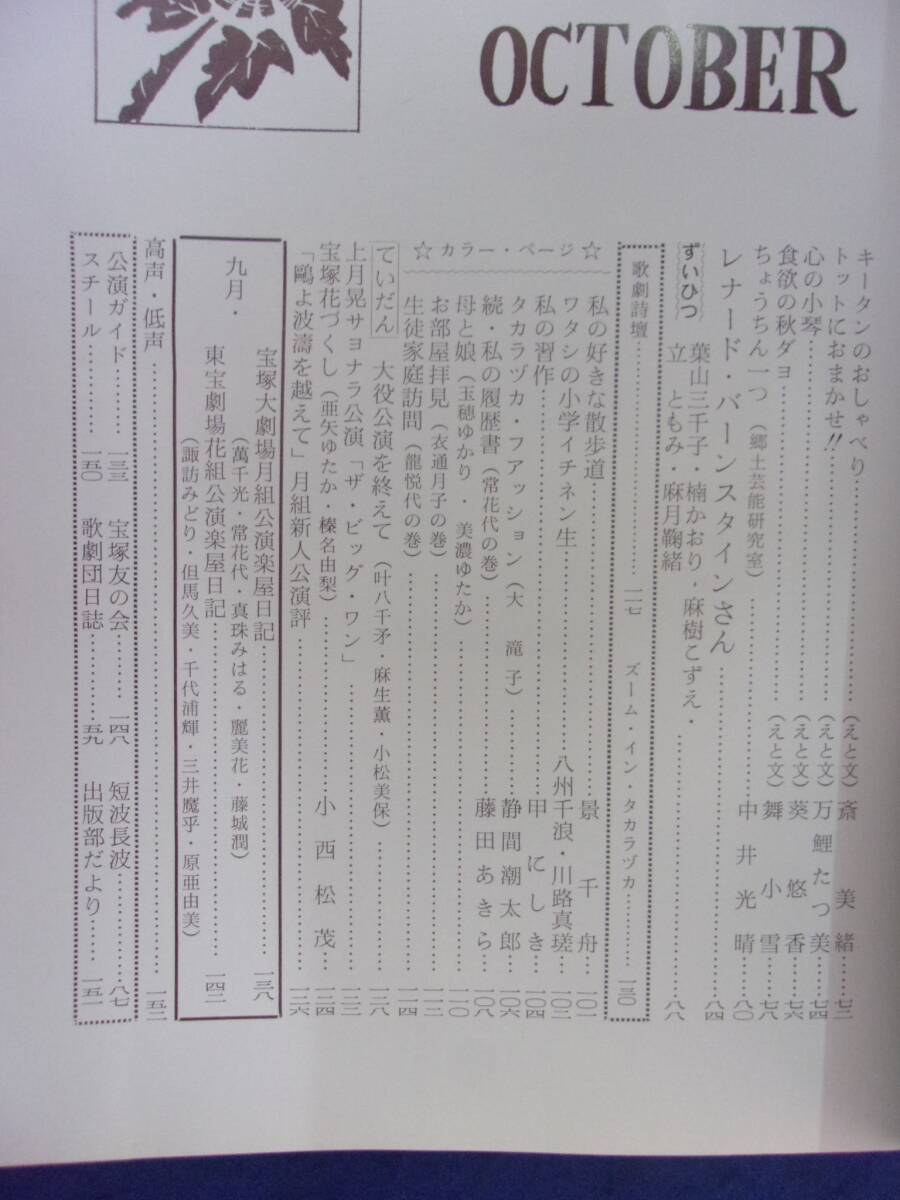 OCTOBER
キータンのおしゃべり……(えと文)斎美緒……七三
トットにおまかせ!!……(えと文)万鯉たつ美……七四
心の小琴……(えと文)葵悠香……七六
食欲の秋ダヨ……(えと文)舞小雪……七八
ちょうちん一つ(郷土芸能研究室)……中井光晴……八〇
レナード・バーンスタインさん……八四
ずいひつ
葉山三千子・楠かおり・麻樹こずえ・
立ともみ・麻月鞠緒……八八
歌劇詩壇……一一七
ズーム・イン・タカラヅカ……一三〇
☆カラー・ページ☆
私の好きな散歩道……景千舟……一〇一
ワタシの小学イチネン生……八州千浪・川路真瑳……一〇二
私の習作……甲にしき……一〇四
タカラヅカ・フアッション(大滝子)……静間潮太郎……一〇六
続・私の履歴書(常花代の巻)……藤田あきら……一〇八
母と娘(玉穂ゆかり・美濃ゆたか)……一一〇
お部屋拝見(衣通月子の巻)……一一二
生徒家庭訪問(龍悦代の巻)……一一四
ていだん 大役公演を終えて(叶八千矛・麻生薫・小松美保)……一二八
上月晃サヨナラ公演「ザ・ビッグ・ワン」……一二二
宝塚花づくし(亜矢ゆたか・榛名由梨)……小西松茂……一二四
「鷗よ波濤を越えて」月組新人公演評……一二六
九月・
宝塚大劇場月組公演楽屋日記……一三八
(萬千光・常花代・真珠みはる・麗美花・藤城潤)
東宝劇場花組公演楽屋日記……一四二
(諏訪みどり・但馬久美・千代浦輝・三井魔乎・原亜由美)
高声・低声……一五二
公演ガイド……一三三 宝塚友の会……一四八 短波長波……八七
スチール……一五〇 歌劇団日誌……五九 出版部だより……一五一